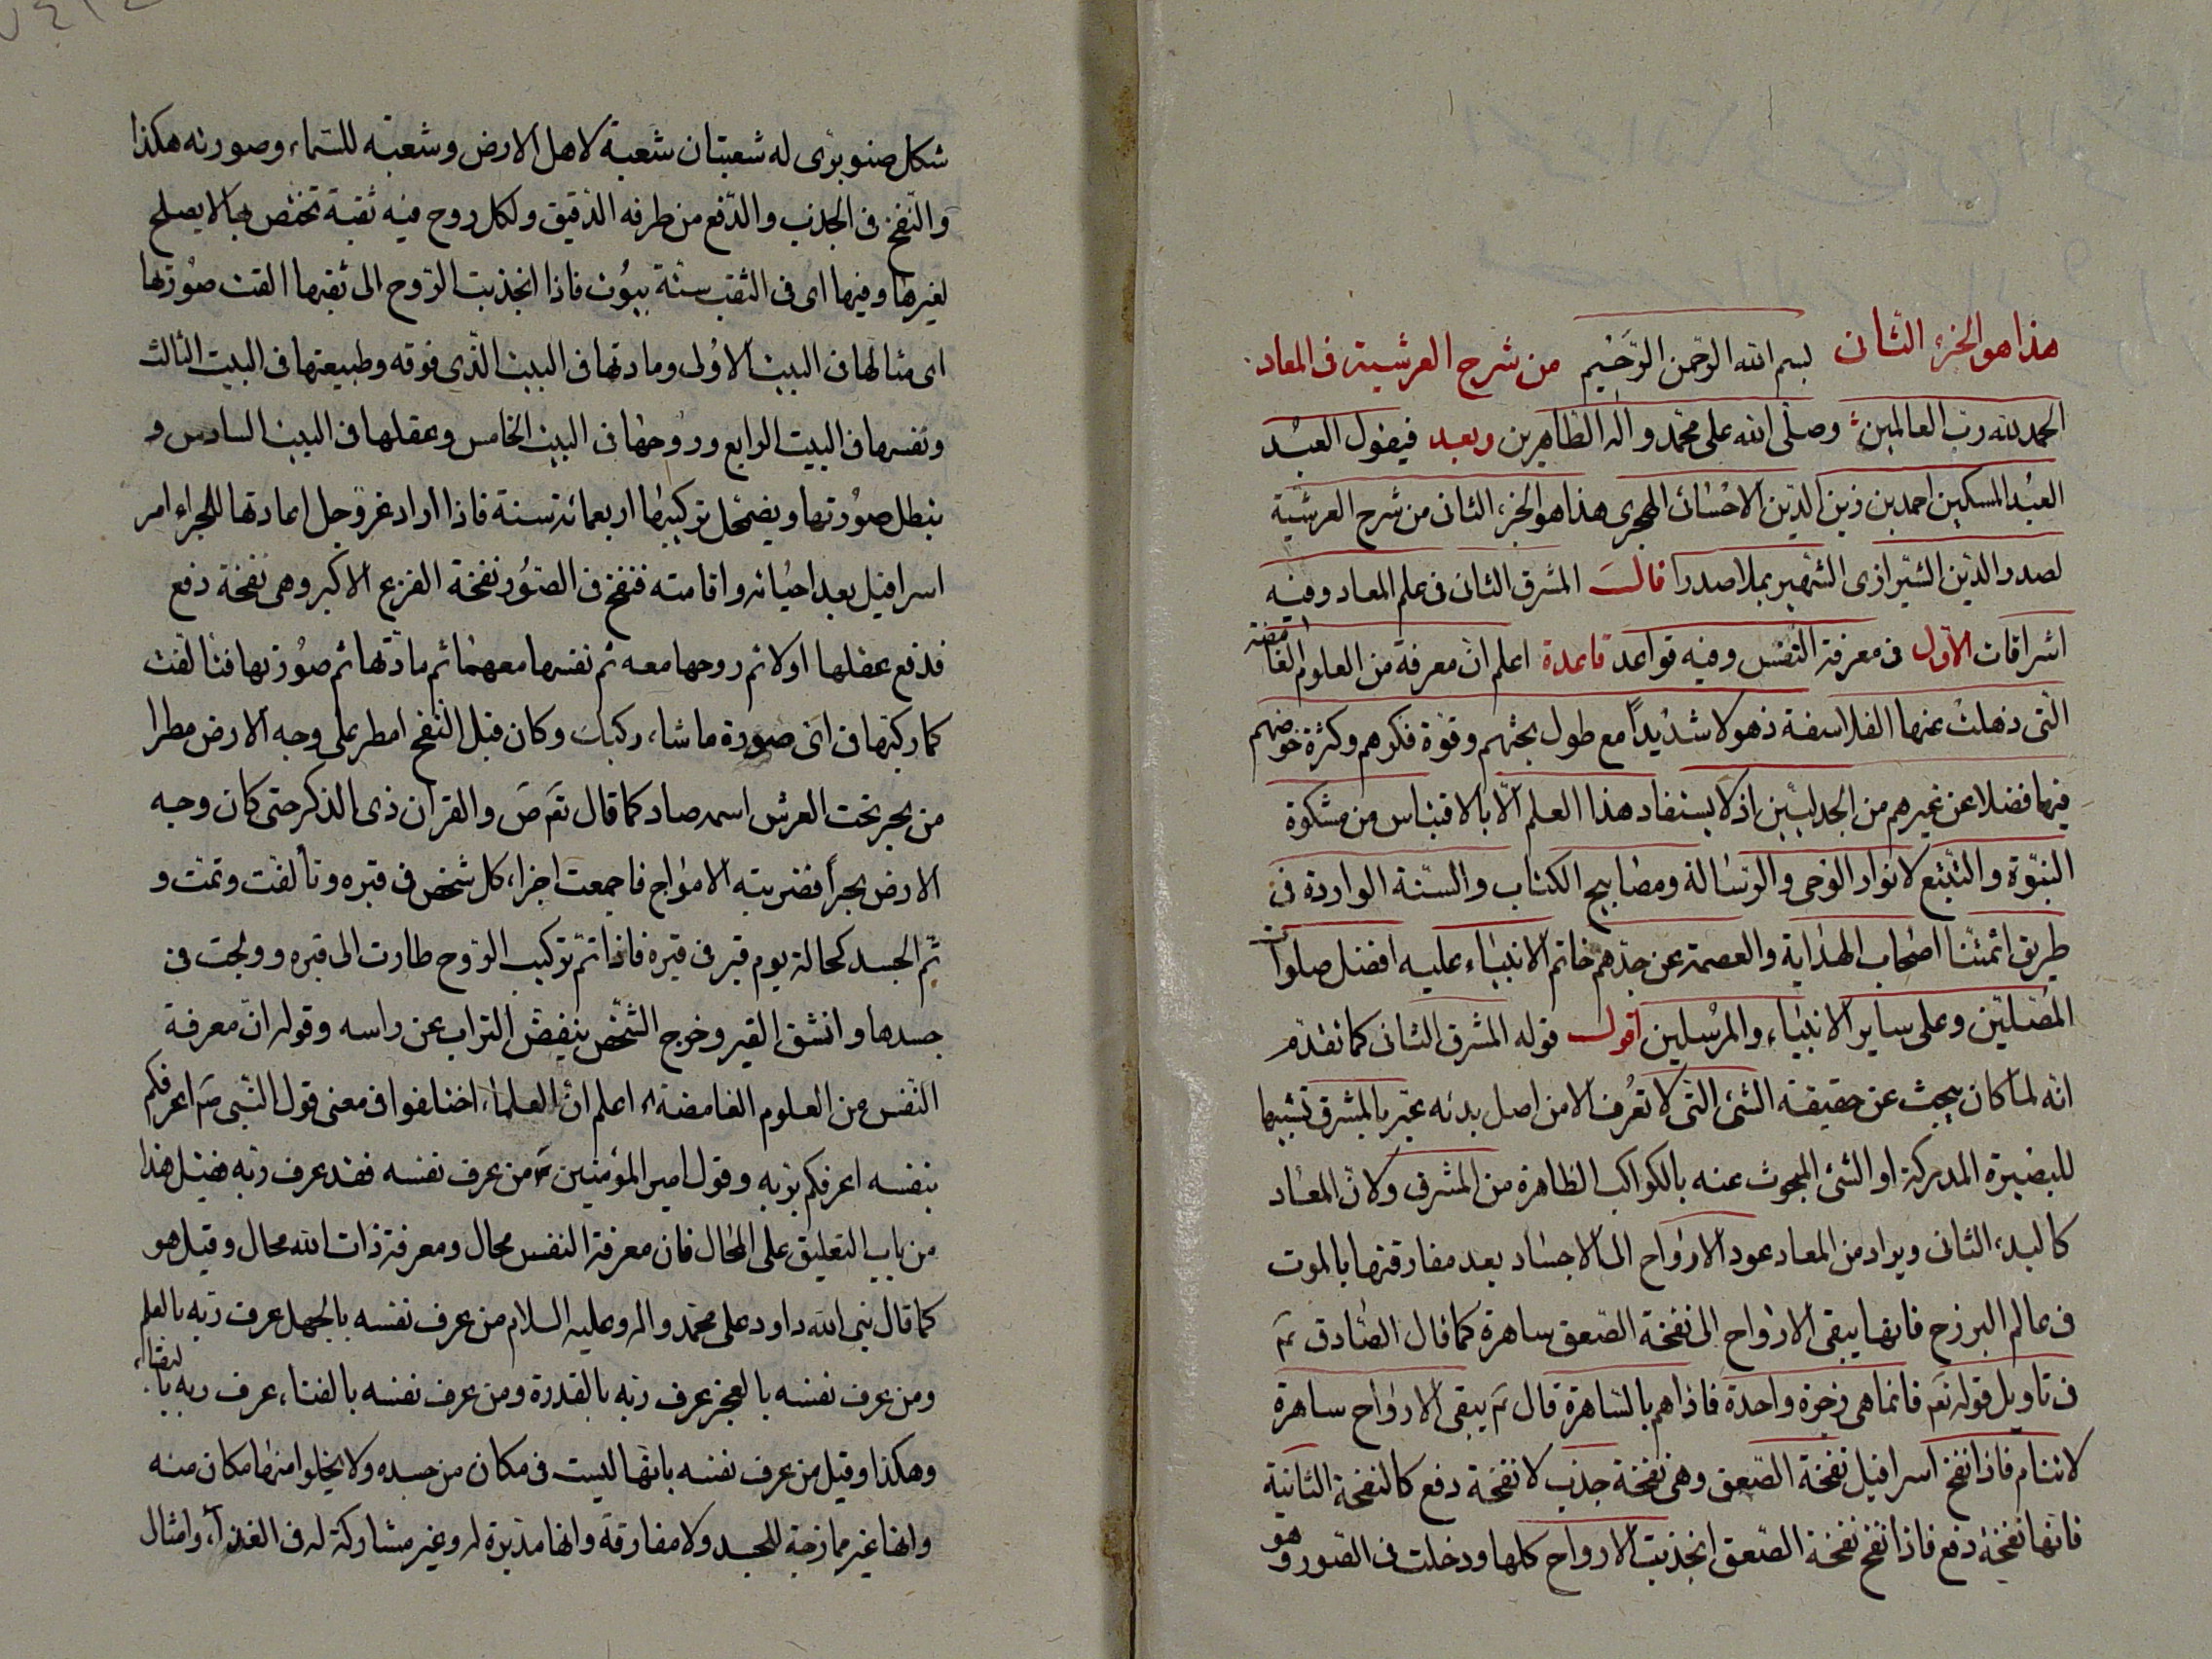 هذا هو الجزء الثانى بسم الله الرحمن الرحيم من شرح العرشية فى المعاد
الحمد لله رب العالمين وصلى الله على محمد واله الطاهرين وبعد فيقول العبد
العبد المسكين احمد بن زين الدين الاحسائى الهجرى هذا هو الجزء الثانى من شرح العرشية
لصدر الدين الشيرازى الشهير بملا صدرا قالـــ المشرق الثانى فى علم المعاد وفيه
اشراقات الاول فى معرفة النفس وفيه قواعد قاعدة اعلم ان معرفة من العلوم الغامضة
التى ذهلت عنها الفلاسفة ذهولا شديداً مع طول بحثهم وقوة فكرهم وكثرة خوضهم
فيها فضلا عن غيرهم من الجدليين اذ لا يستفاد هذا العلم الّا بالاقتباس من مشكوة
النبوّة والتتبع لانوار الوحى والرسالة ومصابيح الكتاب والسنة الواردة فى
طريق ائمتنا اصحاب الهداية والعصمة عن جدهم خاتم الانبياء عليه افضل صلوات
المصلين وعلى ساير الانبياء والمرسلين اقول قوله المشرق الثانى كما تقدم
انه لما كان يبحث عن حقيقة الشئ التى لا تعرف الا من اصل بدئه عبّر بالمشرق تشبيها
للبصيرة المدركة او الشئ المبحوث عنه بالكواكب الظاهرة من المشرق ولان المعاد
كالبدء الثانى ويراد من المعاد عود الارواح الى الاجساد بعد مفارقتها بالموت
فى عالم البرزخ فانها يبقى الارواح الى نفخة الصعق ساهرة كما قال الصادق ع
فى تاويل قوله تع فانما هى زجرة واحدة فاذا هم بالساهرة قال ع يبقى الارواح ساهرة
لا تنام فاذا نفخ اسرافيل نفخة الصعق وهى نفخة جذب لا نفخة دفع كالنفخة الثانية
فانها نفخة دفع فاذا نفخ نفخة الصعق انجذبت الارواح كلها ودخلت فى الصور وهو
شكل صنوبرى له شعبتان شعبة لاهل الارض وشعبة للسماء وصورته هكذا
والنفخ فى الجذب والدّفع من طرفه الدقيق ولكل روح فيه ثقبة تختص بها لا يصلح
لغيرها وفيها اى فى الثقب ستة بيوت فاذا انجذبت الروح الى ثقبها القت صورتها
اى مثالها فى البيت الاولى ومادتها فى البيت الذى فوقه وطبيعتها فى البيت الثالث
ونفسها فى البيت الرابع وروحها فى البيت الخامس وعقلها فى البيت السادس و
بنطل صورتها ويضمحل تركيبها اربعمائة سنة فاذا اراد عز وجل اعادتها للجزاء امر
اسرافيل بعد احيائه واقامته فنفخ فى الصور نفخة الفزع الاكبر وهى نفخة دفع
فدفع عقلها اولا ثم روحها معه ثم نفسها معهما ثم مادتها ثم صورتها فتالفت
كما ركبتها فى اى صورة ما شاء ركبك وكان قبل النفخ امطر على وجه الارض مطرا
من بحر تحت العرش اسمه صاد كما قال تع ص والقران ذى الذكر حتى كان وجه
الارض بحراً فضربته الامواج فاجمعت اجزاء كل شخص فى قبره وتألفت وتمت و
تم الجسد كحالة يوم قبر فى قبره فاذا تم تركيب الروح طارت الى قبره وولجت فى
جسدها وانشق القبر وخرج الشخص ينفض التراب عن راسه وقوله ان معرفة
النفس من العلوم الغامضة اعلم ان العلماء اختلفوا فى معنى قول النبى ص اعرفكم
بنفسه اعرفكم بربه وقول امير المؤمنين ع من عرف نفسه فقد عرف ربه فقيل هذا
من باب التعليق على المحال فان معرفة النفس محال ومعرفة ذات الله محال وقيل هو
كما قال نبى الله داود على محمد واله وعليه السلام من عرف نفسه بالجهل عرف ربه بالعلم
ومن عرف نفسه بالعجز عرف ربه بالقدرة ومن عرف نفسه بالفناء عرف ربه بالبقاء
وهكذا وقيل من عرف نفسه بانها ليست فى مكان من جسده ولا يخلوا منها مكان منه
وانها غير ممازجة للجسد ولا مفارقة وانها مدبرة له وغير مشاركة له فى الغذاء وامثال